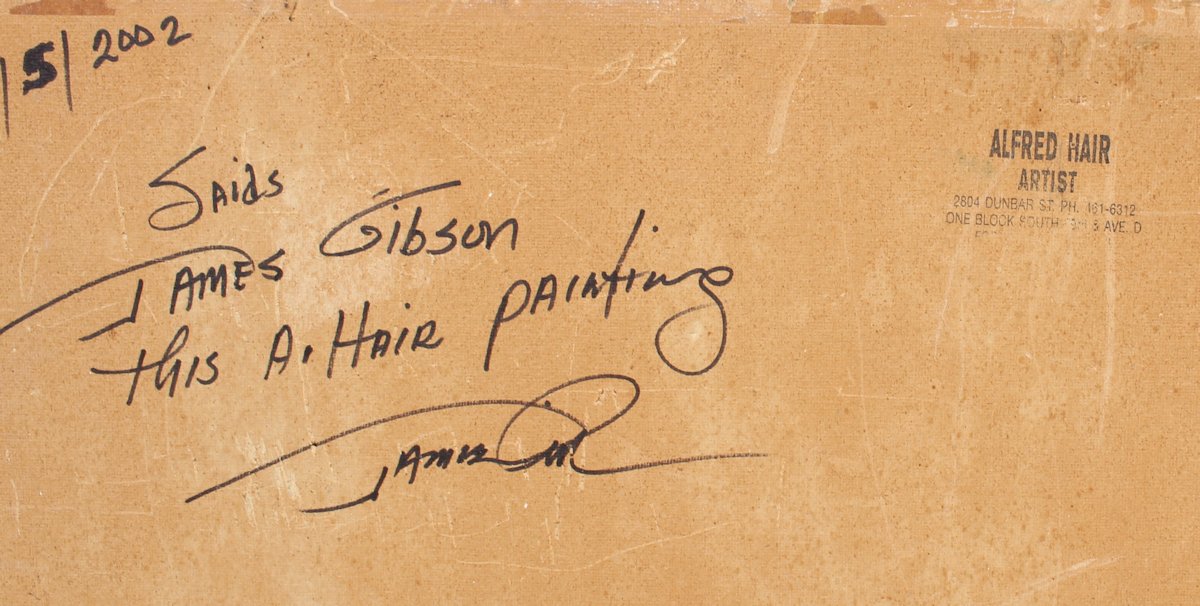 /5/2002
Saids
James Gibson
this A. Hair painting
James
ALFRED HAIR
ARTIST
2804 DUNBAR ST. PH. 461-6312
ONE BLOCK SOUTH & AVE. D